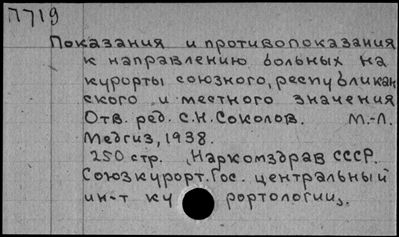 П719
Показания и противопоказания
к направлению больных на
курорты союзного, республикан
ского и местного значения
Отв. ред. С.Н. Соколов. М.-Л.
Медгиз, 1938.
250 стр. Наркомздрав СССР.
Союзкурорт. Гос. центральный
ин-т ку рортологии,.